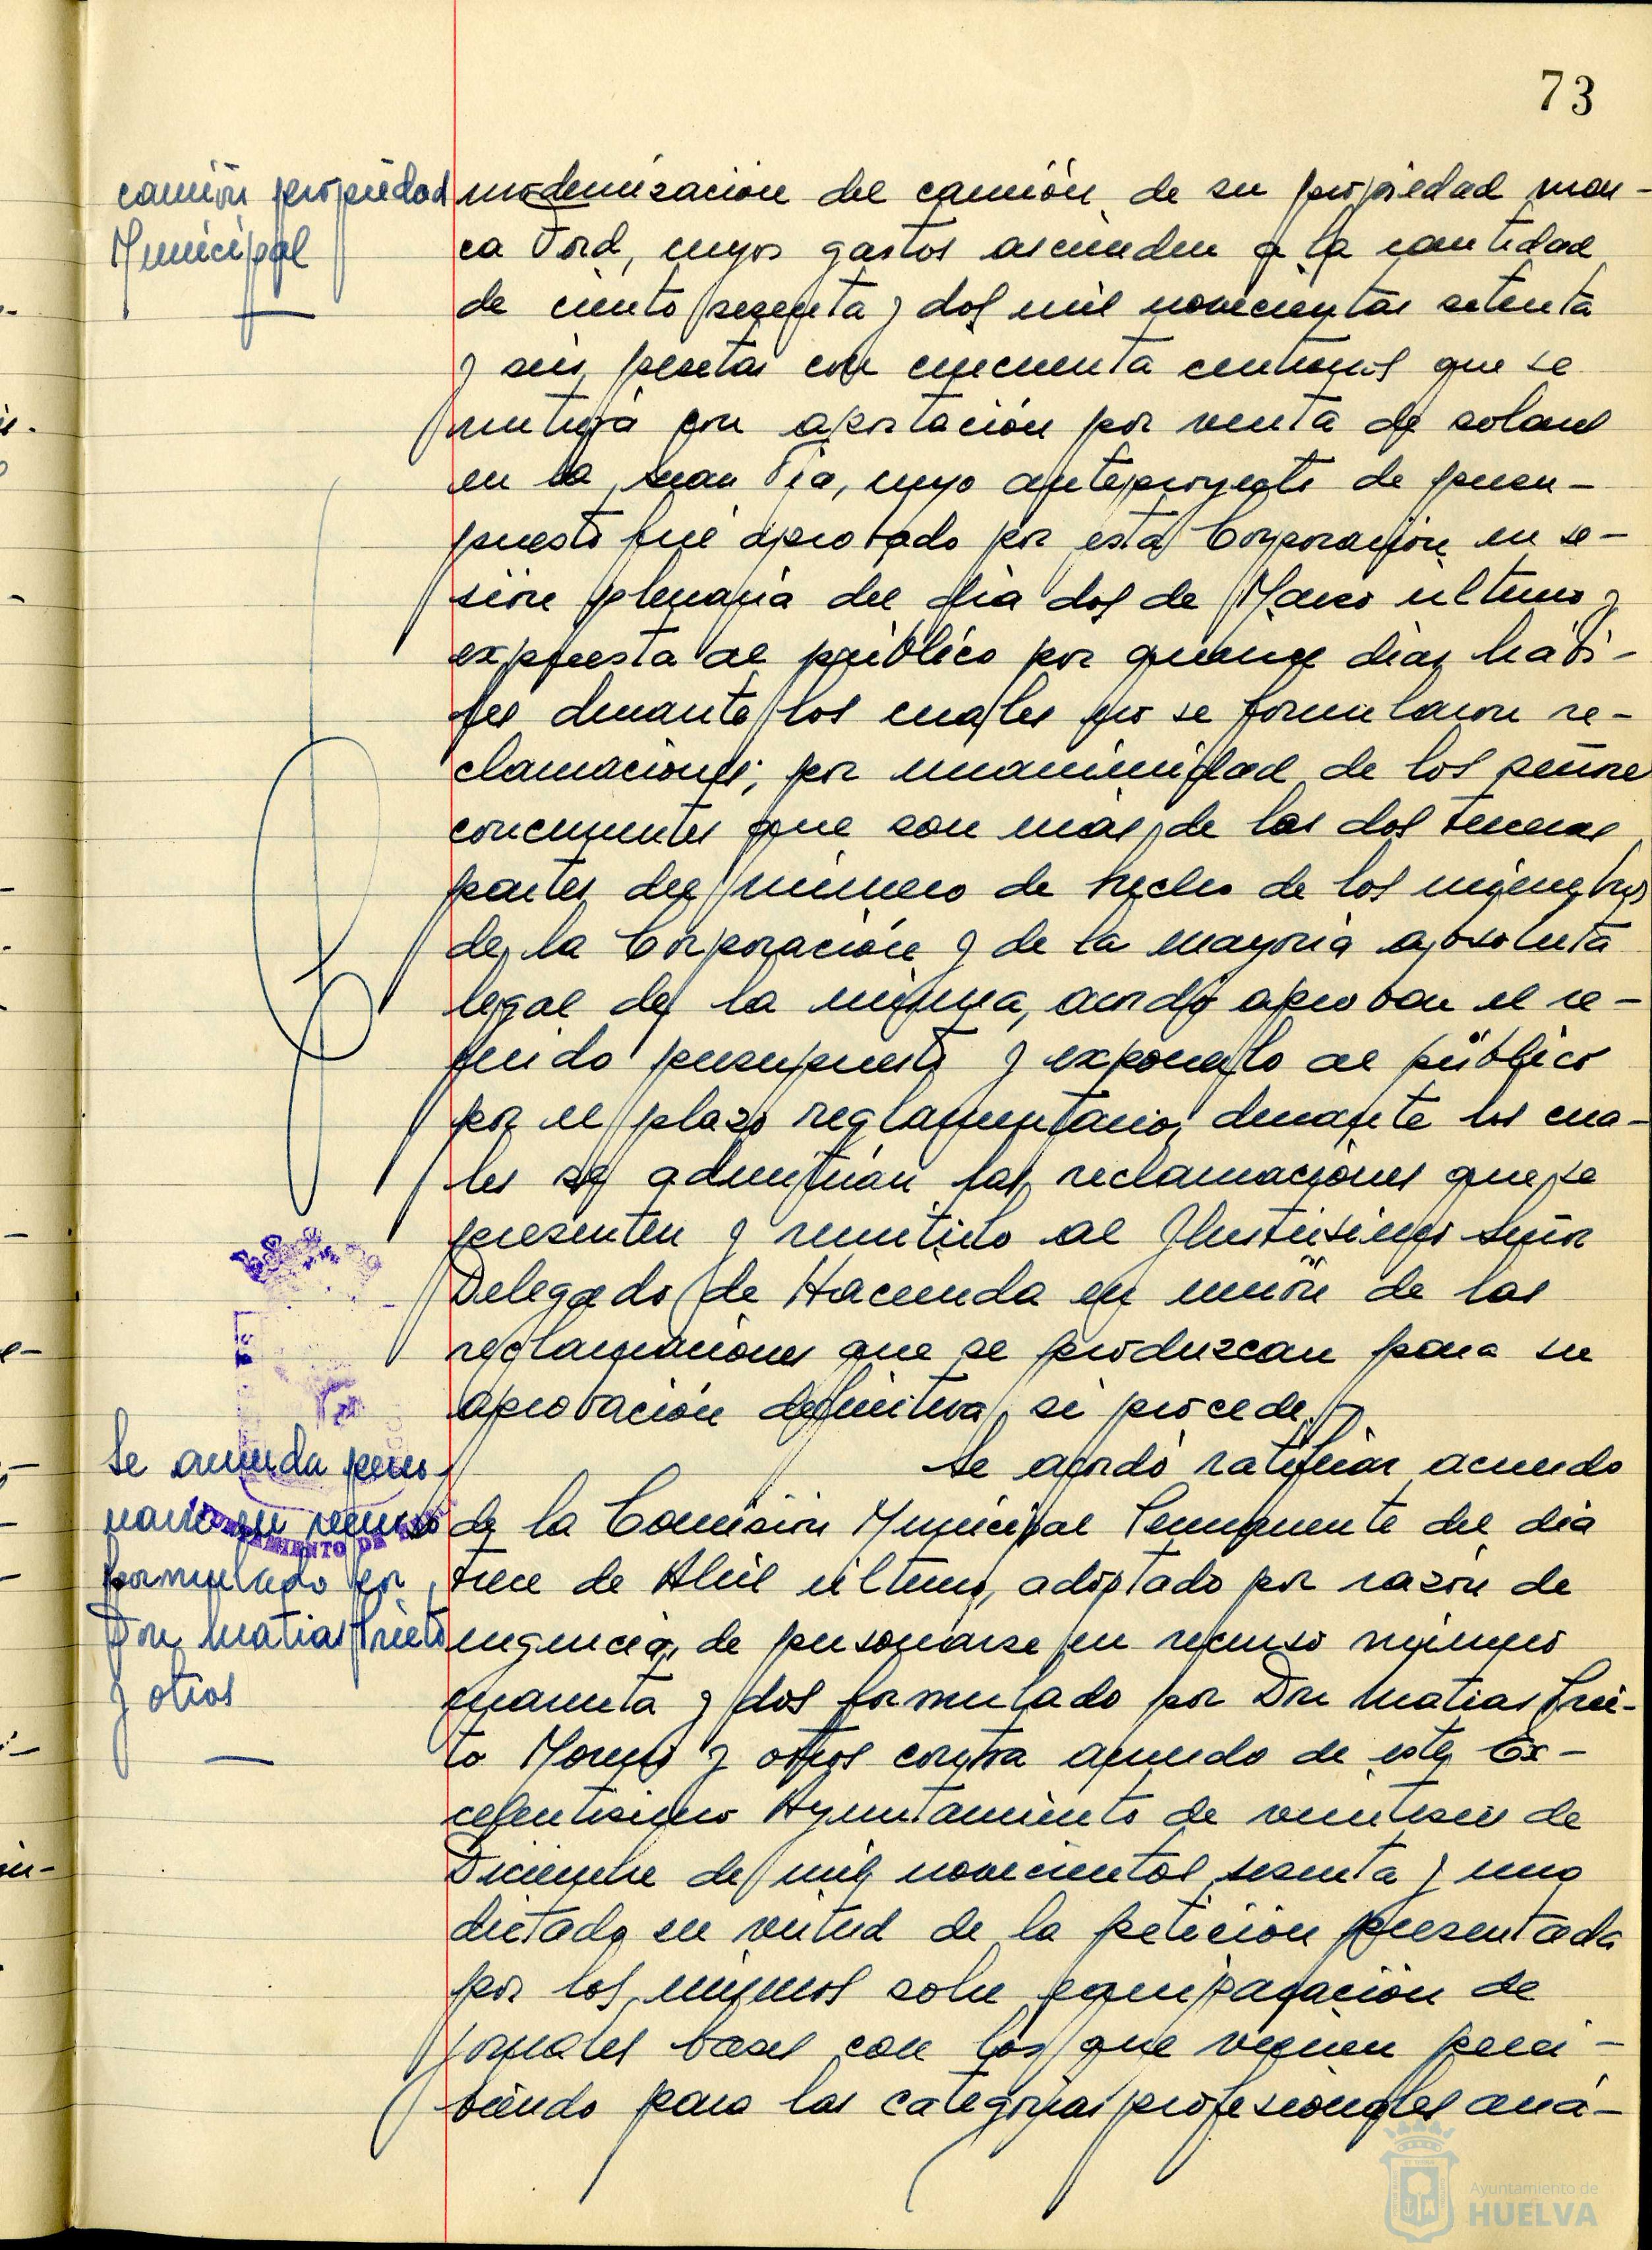 73
camión propiedad
Municipal
modernización del camión de su propiedad mar-
ca Ford, cuyos gastos ascienden a la cantidad
de ciento sesenta y dos mil novecientas setenta
y seis pesetas con cincuenta centimos que se
nutrirá con aportación por venta de solares
en la Gran Vía, cuyo anteproyecto de presu-
puesto fué aprobado por esta Corporación en se-
sión plenaria del dia dos de Marzo ultimo y
expuesta al público por quince dias hábi-
les durante los cuales no se formularon re-
clamaciones; por unanimidad de los señores
concurrentes que son más de las dos terceras
partes del número de hecho de los miembros
de la Corporación y de la mayoria absoluta
legal de la misma, acordó aprobar el re-
ferido presupuesto y exponerlo al público
por el plazo reglamentario, durante los cua-
les se admitirán las reclamaciones que se
presenten y remitirlo al Ilustrisimo Señor
Delegado de Hacienda en unión de las
reclamaciones que se produzcan para su
aprobación definitiva, si procede.
Se acuerda perso-
narse en recurso
formulado por
Don Matias Prieto
y otros
AYUNTAMIENTO DE
Se acordó ratificar acuerdo
de la Comisión Municipal Permanente del dia
trece de Abril ultimo, adoptado por razón de
urgencia, de personarse en recurso número
cuarenta y dos formulado por Don Matias Prie-
to Moreno y otros contra acuerdo de este Ex-
celentisimo Ayuntamiento de veintiseis de
Diciembre de mil novecientos sesenta y uno
dictado en virtud de la petición presentada
por los mismos sobre equiparación de
jornales bases con los que vienen perci-
biendo para las categorias profesionales aná-
Ayuntamiento de
HUELVA